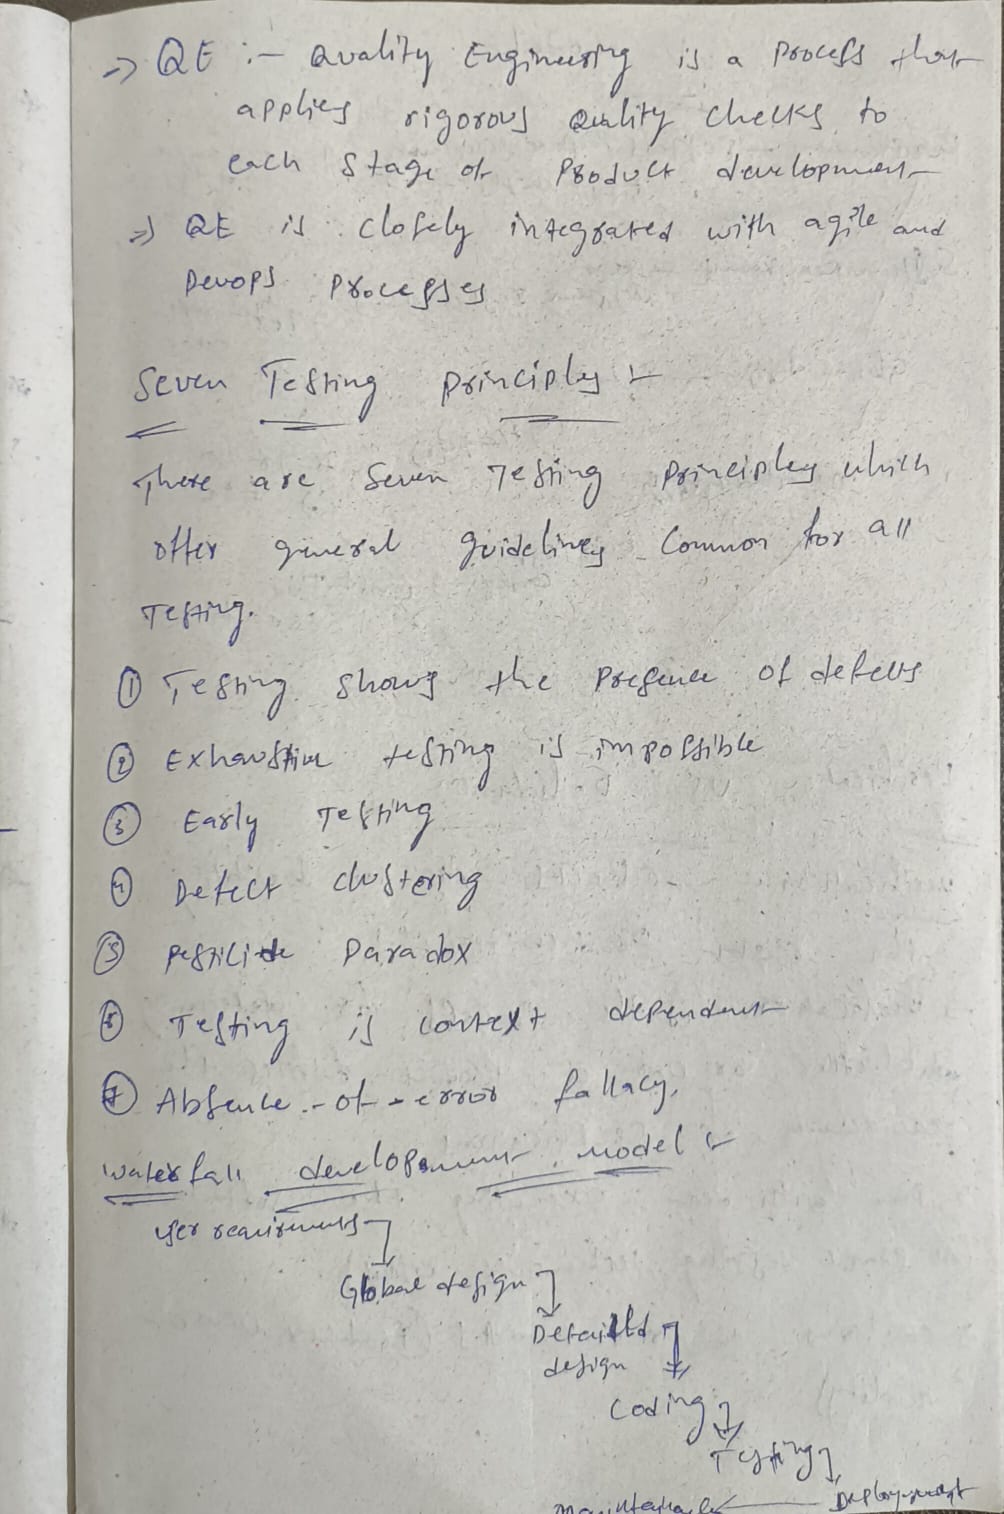 => QE :- Quality Engineering is a Process that
applies rigorous Quality checks to
each stage of Product development
=> QE is closely integrated with agile and
Devops Processes
Seven Testing Principles :-
There are Seven Testing Principles which
offer general guidelines common for all
Testing.
① Testing shows the Presence of defects
② Exhaustive testing is impossible
③ Early Testing
④ Defect clustering
⑤ Pesticide Paradox
⑥ Testing is context dependent
⑦ Absence-of-error fallacy.
Waterfall development model :-
User requirements
Global design
Detailed
design
Coding
Testing
Maintenance ← Deployment